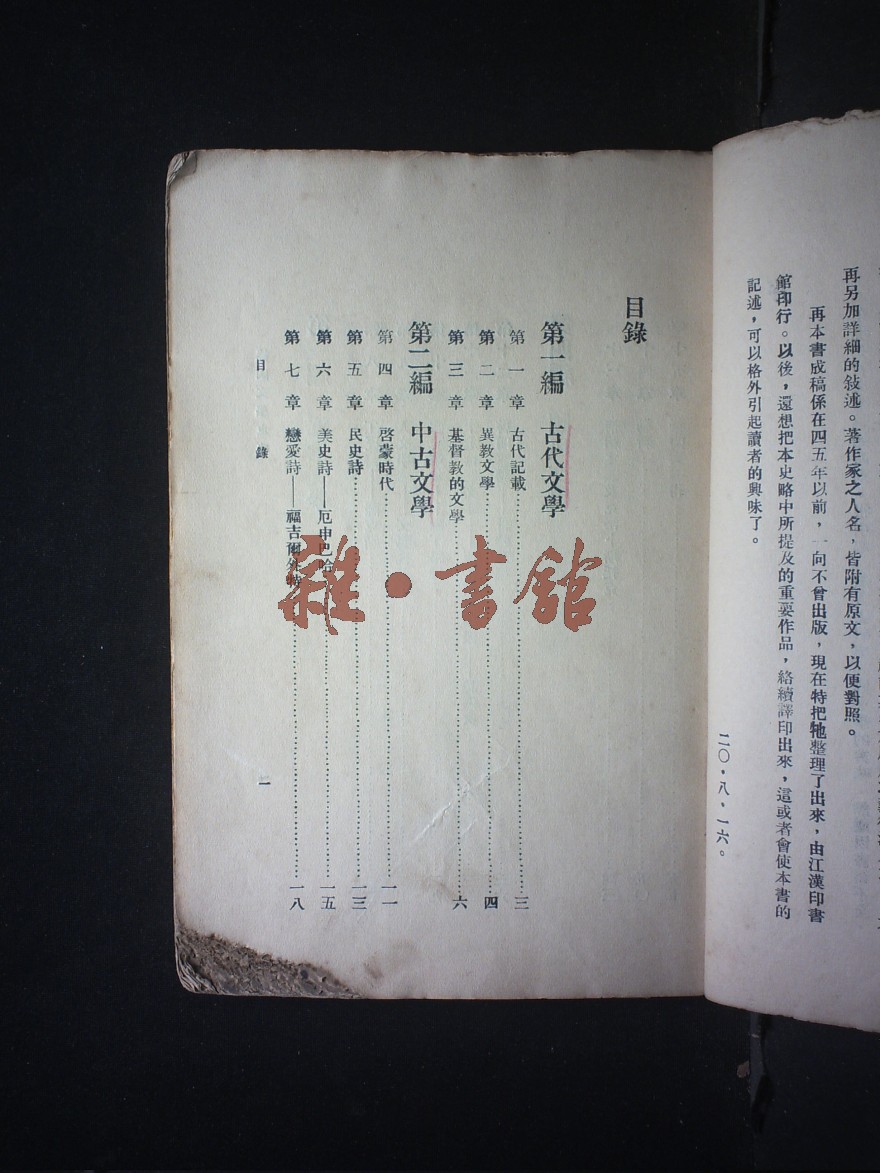 再另加詳細的敍述。著作家之人名，皆附有原文，以便對照。
再本書成稿係在四五年以前，一向不曾出版，現在特把牠整理了出來，由江漢印書
館印行。以後，還想把本史略中所提及的重要作品，絡續譯印出來，這或者會使本書的
記述，可以格外引起讀者的興味了。
二〇・八・一六。
目錄
第一編　古代文學
第一章　古代記載……三
第二章　異教文學……四
第三章　基督教的文學……六
第二編　中古文學
第四章　啓蒙時代……一一
第五章　民史詩……一三
第六章　美史詩——厄申巴哈……一五
第七章　戀愛詩——福吉爾外德……一八
目錄　一
雜・書館